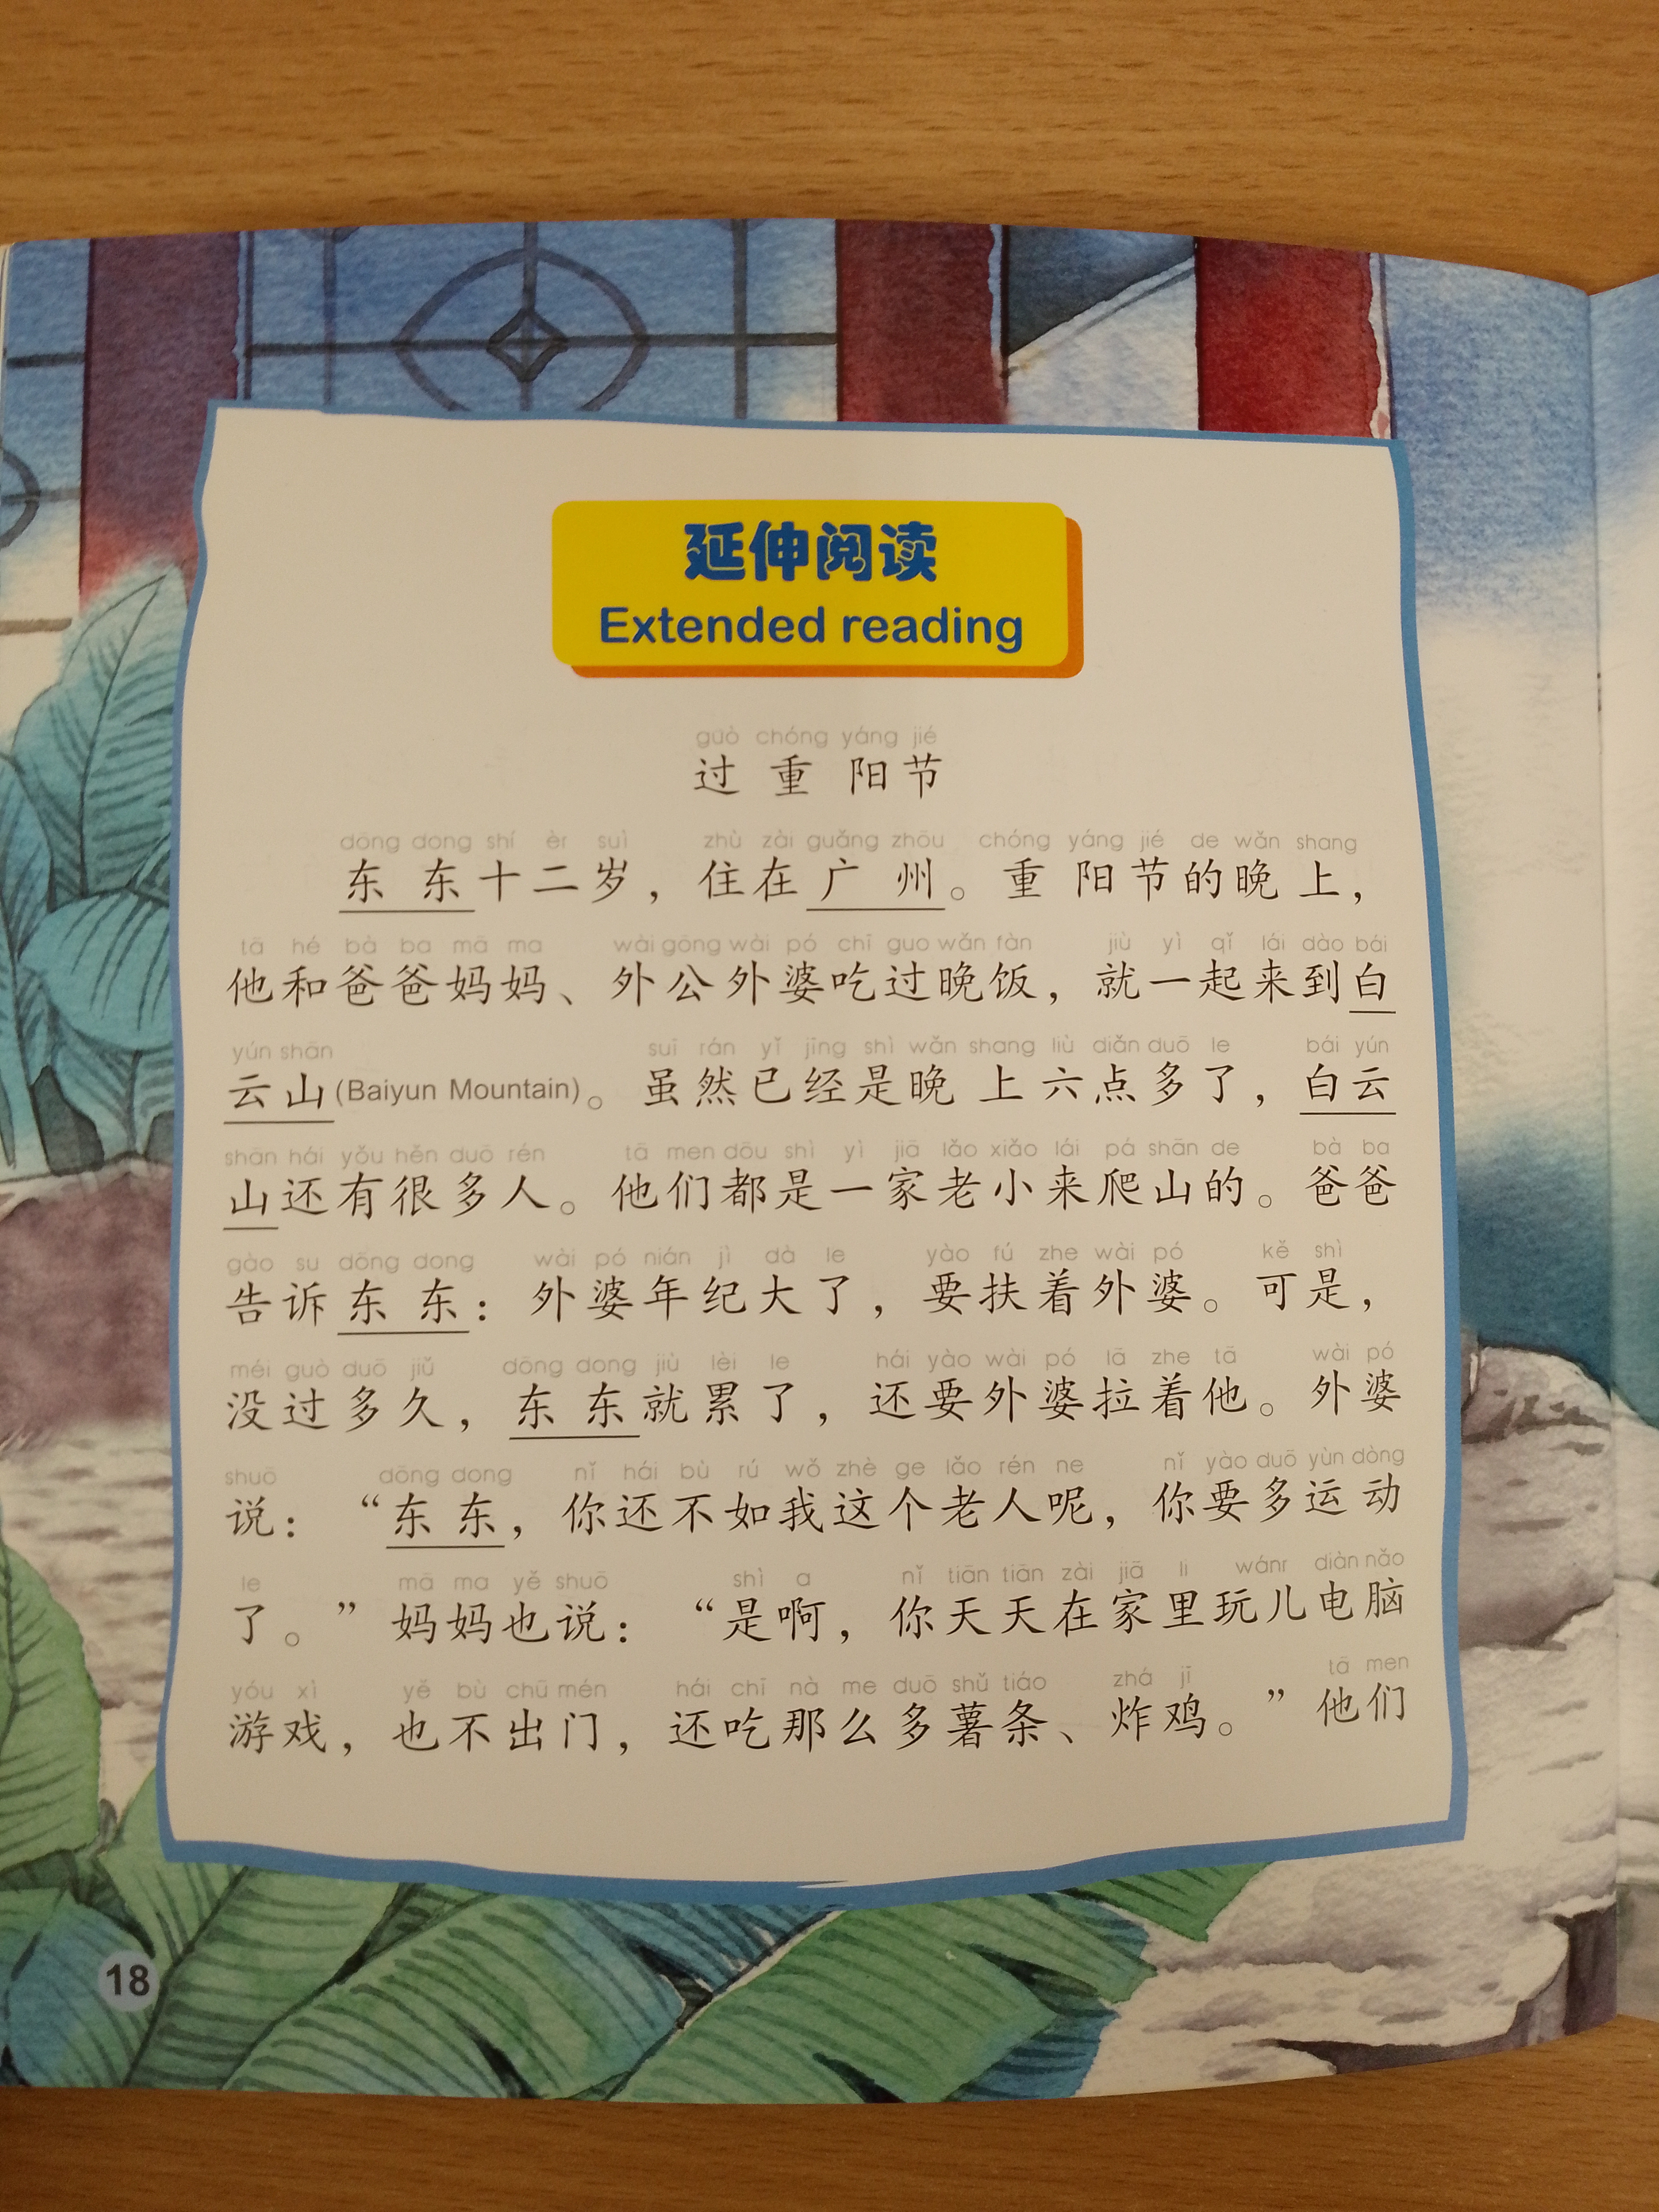 延伸阅读
Extended reading
guò chóng yáng jié
过重阳节
dōng dong shí èr suì zhù zài guǎng zhōu chóng yáng jié de wǎn shang
东东十二岁，住在广州。重阳节的晚上，
tā hé bà ba mā ma wài gōng wài pó chī guo wǎn fàn jiù yì qǐ lái dào bái
他和爸爸妈妈、外公外婆吃过晚饭，就一起来到白
yún shān suī rán yǐ jīng shì wǎn shang liù diǎn duō le bái yún
云山(Baiyun Mountain)。虽然已经是晚上六点多了，白云
shān hái yǒu hěn duō rén tā men dōu shì yì jiā lǎo xiǎo lái pá shān de bà ba
山还有很多人。他们都是一家老小来爬山的。爸爸
gào su dōng dong wài pó nián jì dà le yào fú zhe wài pó kě shì
告诉东东：外婆年纪大了，要扶着外婆。可是，
méi guò duō jiǔ dōng dong jiù lèi le hái yào wài pó lā zhe tā wài pó
没过多久，东东就累了，还要外婆拉着他。外婆
shuō dōng dong nǐ hái bù rú wǒ zhè ge lǎo rén ne nǐ yào duō yùn dòng
说：“东东，你还不如我这个老人呢，你要多运动
le mā ma yě shuō shì a nǐ tiān tiān zài jiā li wánr diàn nǎo
了。”妈妈也说：“是啊，你天天在家里玩儿电脑
yóu xì yě bù chū mén hái chī nà me duō shǔ tiáo zhá jī tā men
游戏，也不出门，还吃那么多薯条、炸鸡。”他们
18